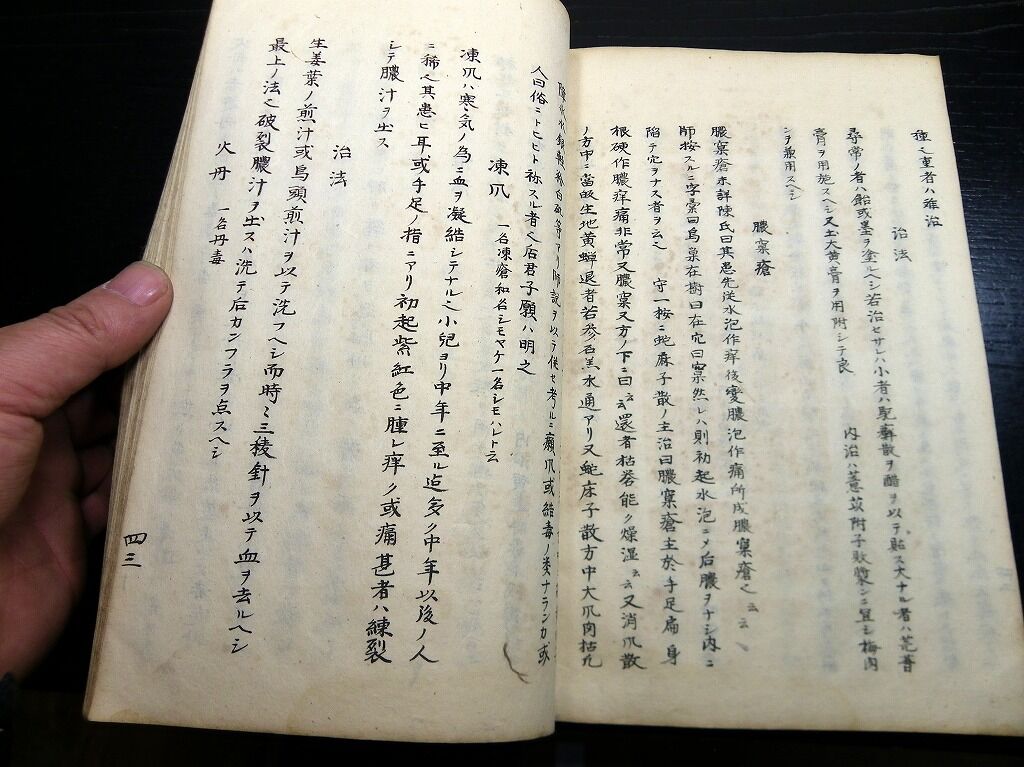 種之重者ハ難治
治法
尋常ノ者ハ飴或墨ヲ塗ルヘシ若治セサレハ小者ハ聖癬散ヲ醋ヲ以テ貼ス大ナル者ハ芫菁
膏ヲ用施スヘシ又土大黄膏ヲ用附シテ良 内治ハ薏苡附子敗醤ニ宜シ梅肉
ヲ兼用スヘシ
膿窠瘡
膿窠瘡未詳陳氏曰其患先従水泡作痒後変膿泡作痛所成膿窠瘡之云云
師按スルニ字彙曰鳥巣在樹曰在穴曰窠然レハ則初起水泡ニメ后膿ヲナシ内ニ
陥テ穴ヲナス者ヲ云之 守一按ニ蛇麻子散ノ主治曰膿窠瘡主於手足扁身
根硬作膿痒痛非常又膿窠又方ノ下ニ曰云還者枯礬能ク燥湿云云又消爪散
ノ方中ニ當歸生地黄蝉退者苦参 水通アリ又蛇床子散方中大爪肉枯九
以テ 考ルニ癩爪或結毒ノ类ナランカ或
人曰俗ニトヒヒト称スル者之后君子願ハ明之
凍爪 一名凍瘡和名シモヤケ一名シモハレト云
凍爪ハ寒気ノ為ニ血ヲ凝結シテナル之小兒ヨリ中年ニ至ル迄多ク中年以後ノ人
ニ稀之其患ヒ耳或手足ノ指ニアリ初起紫紅色ニ腫レ痒ク或痛甚者ハ練裂
シテ膿汁ヲ出ス
治法
生姜葉ノ煎汁或烏頭煎汁ヲ以テ洗フヘシ而時ミ三稜針ヲ以テ血ヲ去ルヘシ
最上ノ法之破裂膿汁ヲ出スハ洗テ后カンフラヲ点スヘシ
火丹 一名丹毒
四三